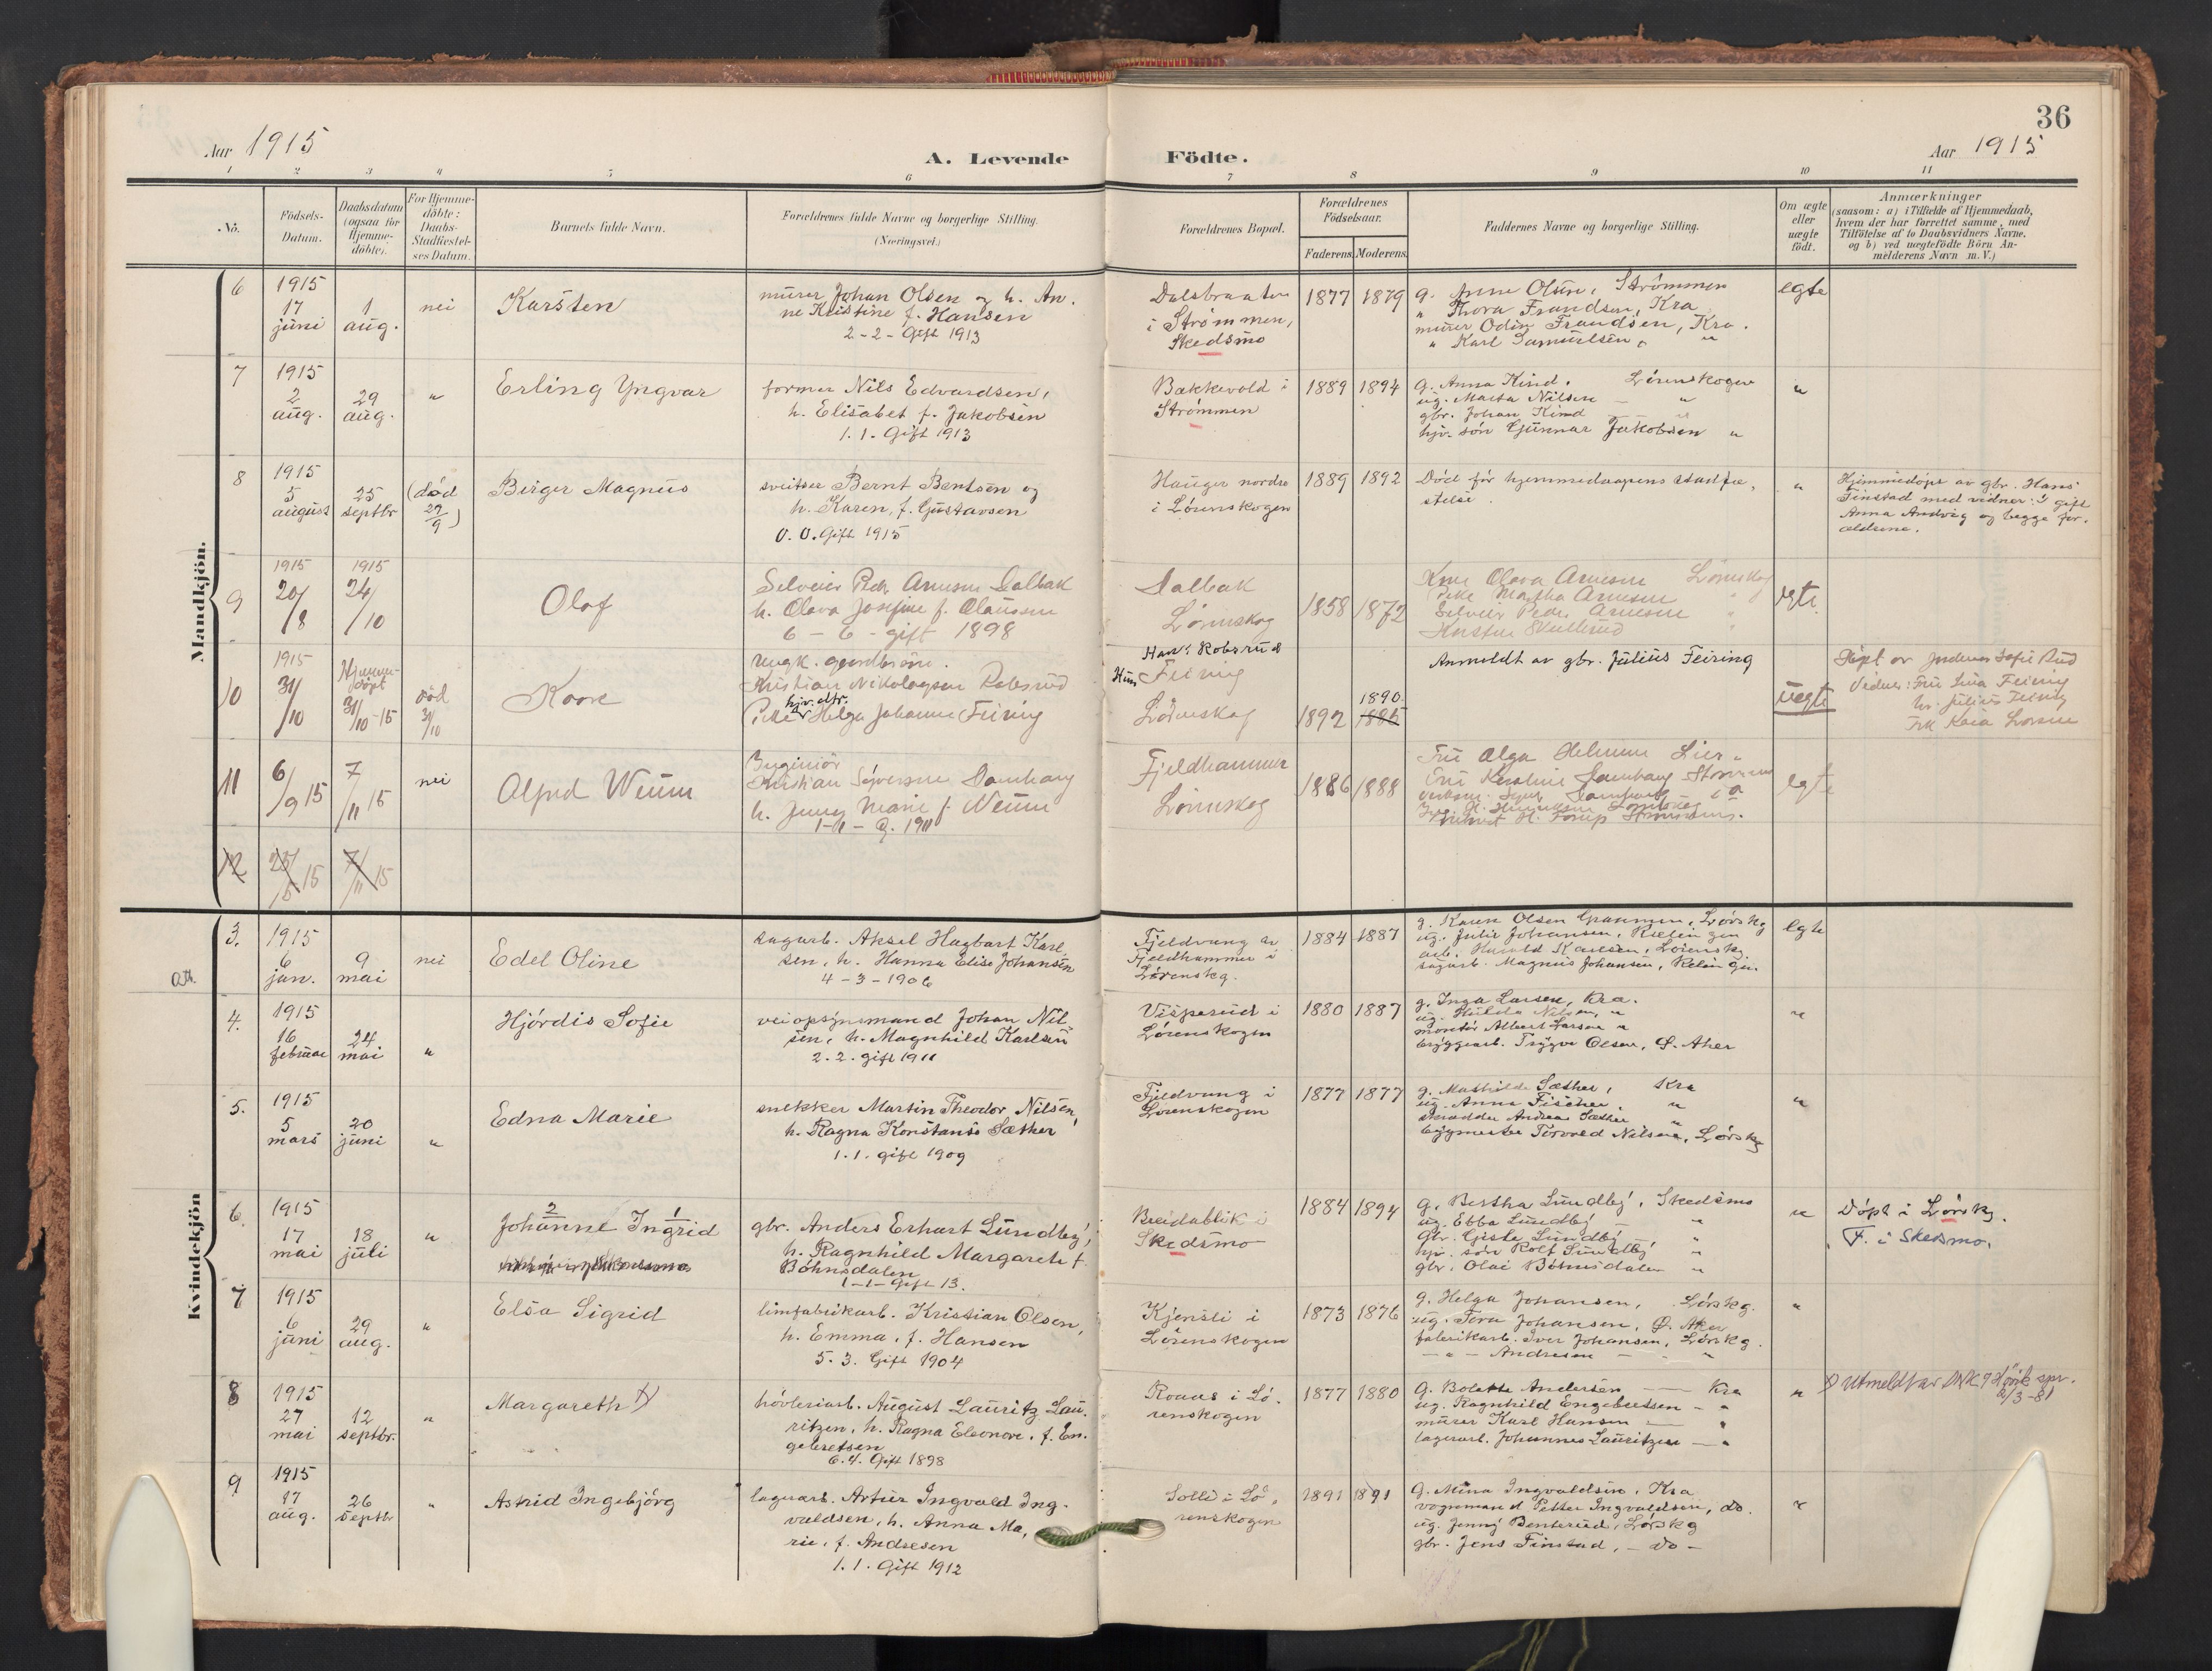 36
Aar 1915
A. Levende Födte.
Aar 1915
1 2 3 4 5 6 7 8 9 10 11
No.
Födsels-Datum.
Daabsdatum (ogsaa for Hjemme-döbte).
For Hjemme-döbte: Daabs-Stadfæstel-ses Datum.
Barnets fulde Navn.
Forældrenes fulde Navne og borgerlige Stilling.
(Næringsvei.)
Forældrenes Bopæl.
Forældrenes Födselsaar.
Faderens. Moderens.
Faddernes Navne og borgerlige Stilling.
Om ægte eller uægte födt.
Anmærkninger
(saasom: a) i Tilfælde af Hjemmedaab,
hvem der har forrettet samme, med
Tilföielse af to Daabsvidners Navne,
og b) ved uægtefödte Börn An-
melderens Navn m. V.)
Mandkjön.
6
1915
17
juni
1
aug.
nei
Karsten
murer Johan Olsen og h. An-
ne Kristine f. Hansen
2-2- Gift 1913
Dalsbraaten
i Strømmen,
Skedsmo
1877 1879
g. Anne Olsen, Strømmen
" Thora Frandsen, Kra
murer Odin Frandsen, Kra.
" Karl Samuelsen, "
egte
7
1915
2
aug.
29
aug.
"
Erling Yngvar
former Nils Edvardsen,
h. Elisabet f. Jakobsen
1.1. Gift 1913
Bakkevold i
Strømmen
1889 1894
g. Anna Kind, Lørenskogen
ug. Marta Nilsen - "
gbr. Johan Kind - - "
hjv. søn Gunnar Jakobsen "
"
8
1915
5
august
25
septbr
(død
29
9)
Birger Magnus
sveitser Bernt Bentsen og
h. Karen, f. Gustavsen
0.0. Gift 1915
Hauger nordre
i Lørenskogen
1889 1892
Død før hjemmedaapens stadfæ-
stelse.
"
Hjemmedøpt av gbr. Hans
Finstad med vidner: gift
Anna Andvig og begge for-
ældrene.
9
1915
20/8
1915
24/10
Olaf
Selveier Peder Arnesen Dalbak
h. Olava Josefine f. Olaussen
6 - 6 - gift 1898
Dalbak
Lørenskog
1858 1872
Kone Olava Arnesen Lørenskog
Pike Martha Arnesen "
Selveier Peder Arnesen "
egte.
10
1915
31/10
Hjemme-
døpt
31/10-15
død
31/10
Kaare
Ungk. gaardbrsøn.
Kristian Nikolaysen Robsrud
hjv. dtr.
Pike Helga Johanne Feiring
Han: Robsrud
Hun: Feiring
Lørenskog
1892
1890
1885
Anmeldt av gbr. Julius Feiring
uegte
Døpt av Jordmor Sofie Rud
Vidner: Fru Lina Feiring
hr. Julius Feiring
Frk Kaia Larsen
11
6/9 15
7/11 15
nei
Alfred Weum
Ingeniør
Kristian Syversen Damhaug
h. Jenny Marie f. Weum
1-1- G. 1911
Fjeldhammer
Lørenskog
1886 1888
Fru Olga Helmen Lier
Fru Kristine Damhaug Strømmen
egte
12
25/5 15
7/11 15
Kvindekjön
Att.
3.
1915
6
jan.
9
mai
nei
Edel Oline
sagarb. Aksel Hagbart Karl-
sen, h. Hanna Elise Johansen
4-3-1906
Fjeldvang v
Fjeldhammer i
Lørenskg.
1884 1887
g. Karen Olsen Grammen, Lørskg
ug. Julie Johansen, Rælingen
arb. Harald Karlsen, Lørensk.
sagarb. Magnus Johansen, Rælingen.
egte
4.
1915
16
februar
24
mai
"
Hjørdis Sofie
veiopsynsmand Johan Nil-
sen, h. Magnhild Karlsen
2.2. gift 1911
Visperud i
Lørenskogen
1880 1887
g. Inga Larsen, Kra.
ug. Hulda Nilsen, "
montør Albert Larsen "
bryggearb. Trygve Olsen, Ø. Aker
"
5.
1915
5
mars
20
juni
"
Edna Marie
snekker Martin Theodor Nilsen,
h. Ragna Konstanse Sæther
1.1. gift 1909
Fjeldvang i
Lørenskogen
1877 1877
g. Mathilde Sæther, Kra
ug. Anna Fischer "
skrædder Andreas Sæther "
bygmester Torvald Nilsen, Lørskg
"
6.
1915
17
mai
18
juli
"
2 1
Johanne Ingrid
gbr. Anders Erhart Lundby,
h. Ragnhild Margarete f.
Bøhnsdalen
1-1- Gift 13.
Breidablik i
Skedsmo
1884 1894
g. Bertha Lundby, Skedsmo
ug. Ebba Lundby - "
Gbr. Gjsta Lundby "
hjv. søn Rolf Lundby "
gbr. Olai Bøhnsdalen "
"
Døpt i Lørskg.
F. i Skedsmo.
7
1915
6
juni
29
aug.
"
Elsa Sigrid
limfabrikarb. Kristian Olsen,
h. Emma, f. Hansen
5. 3. Gift 1904
Kjensli i
Lørenskogen
1873 1876
g. Helga Johansen, Lørskg.
ug. Tora Johansen, Ø. Aker
fabrikarb. Iver Johansen, Lørskg.
- " - Andresen - "
"
8
1915
27
mai
12
septbr.
"
Margareth X)
høvleriarb. August Lauritz Lau-
ritzen, h. Ragna Eleonore, f. En-
gebretsen
6.4. Gift 1898
Roaas i Lø-
renskogen
1877 1880
G. Bolette Andersen - Kra
ug. Ragnhild Engebretsen - "
murer Karl Hansen - "
lagerarb. Johannes Lauritzen - "
"
X) Utmeldt av DNK
9
1915
17
aug.
26
septbr
"
Astrid Ingebjørg
lagerarb. Artur Ingvald Ing-
valdsen, h. Anna Ma-
rie, f. Andresen
1.1. Gift 1912
Solli i Lø-
renskogen
1891 1891
G. Mina Ingvaldsen, Kra
vognmand Petter Ingvaldsen, do.
ug. Jenny Benterud, Lørskg
gbr. Jens Finstad, - do -
"